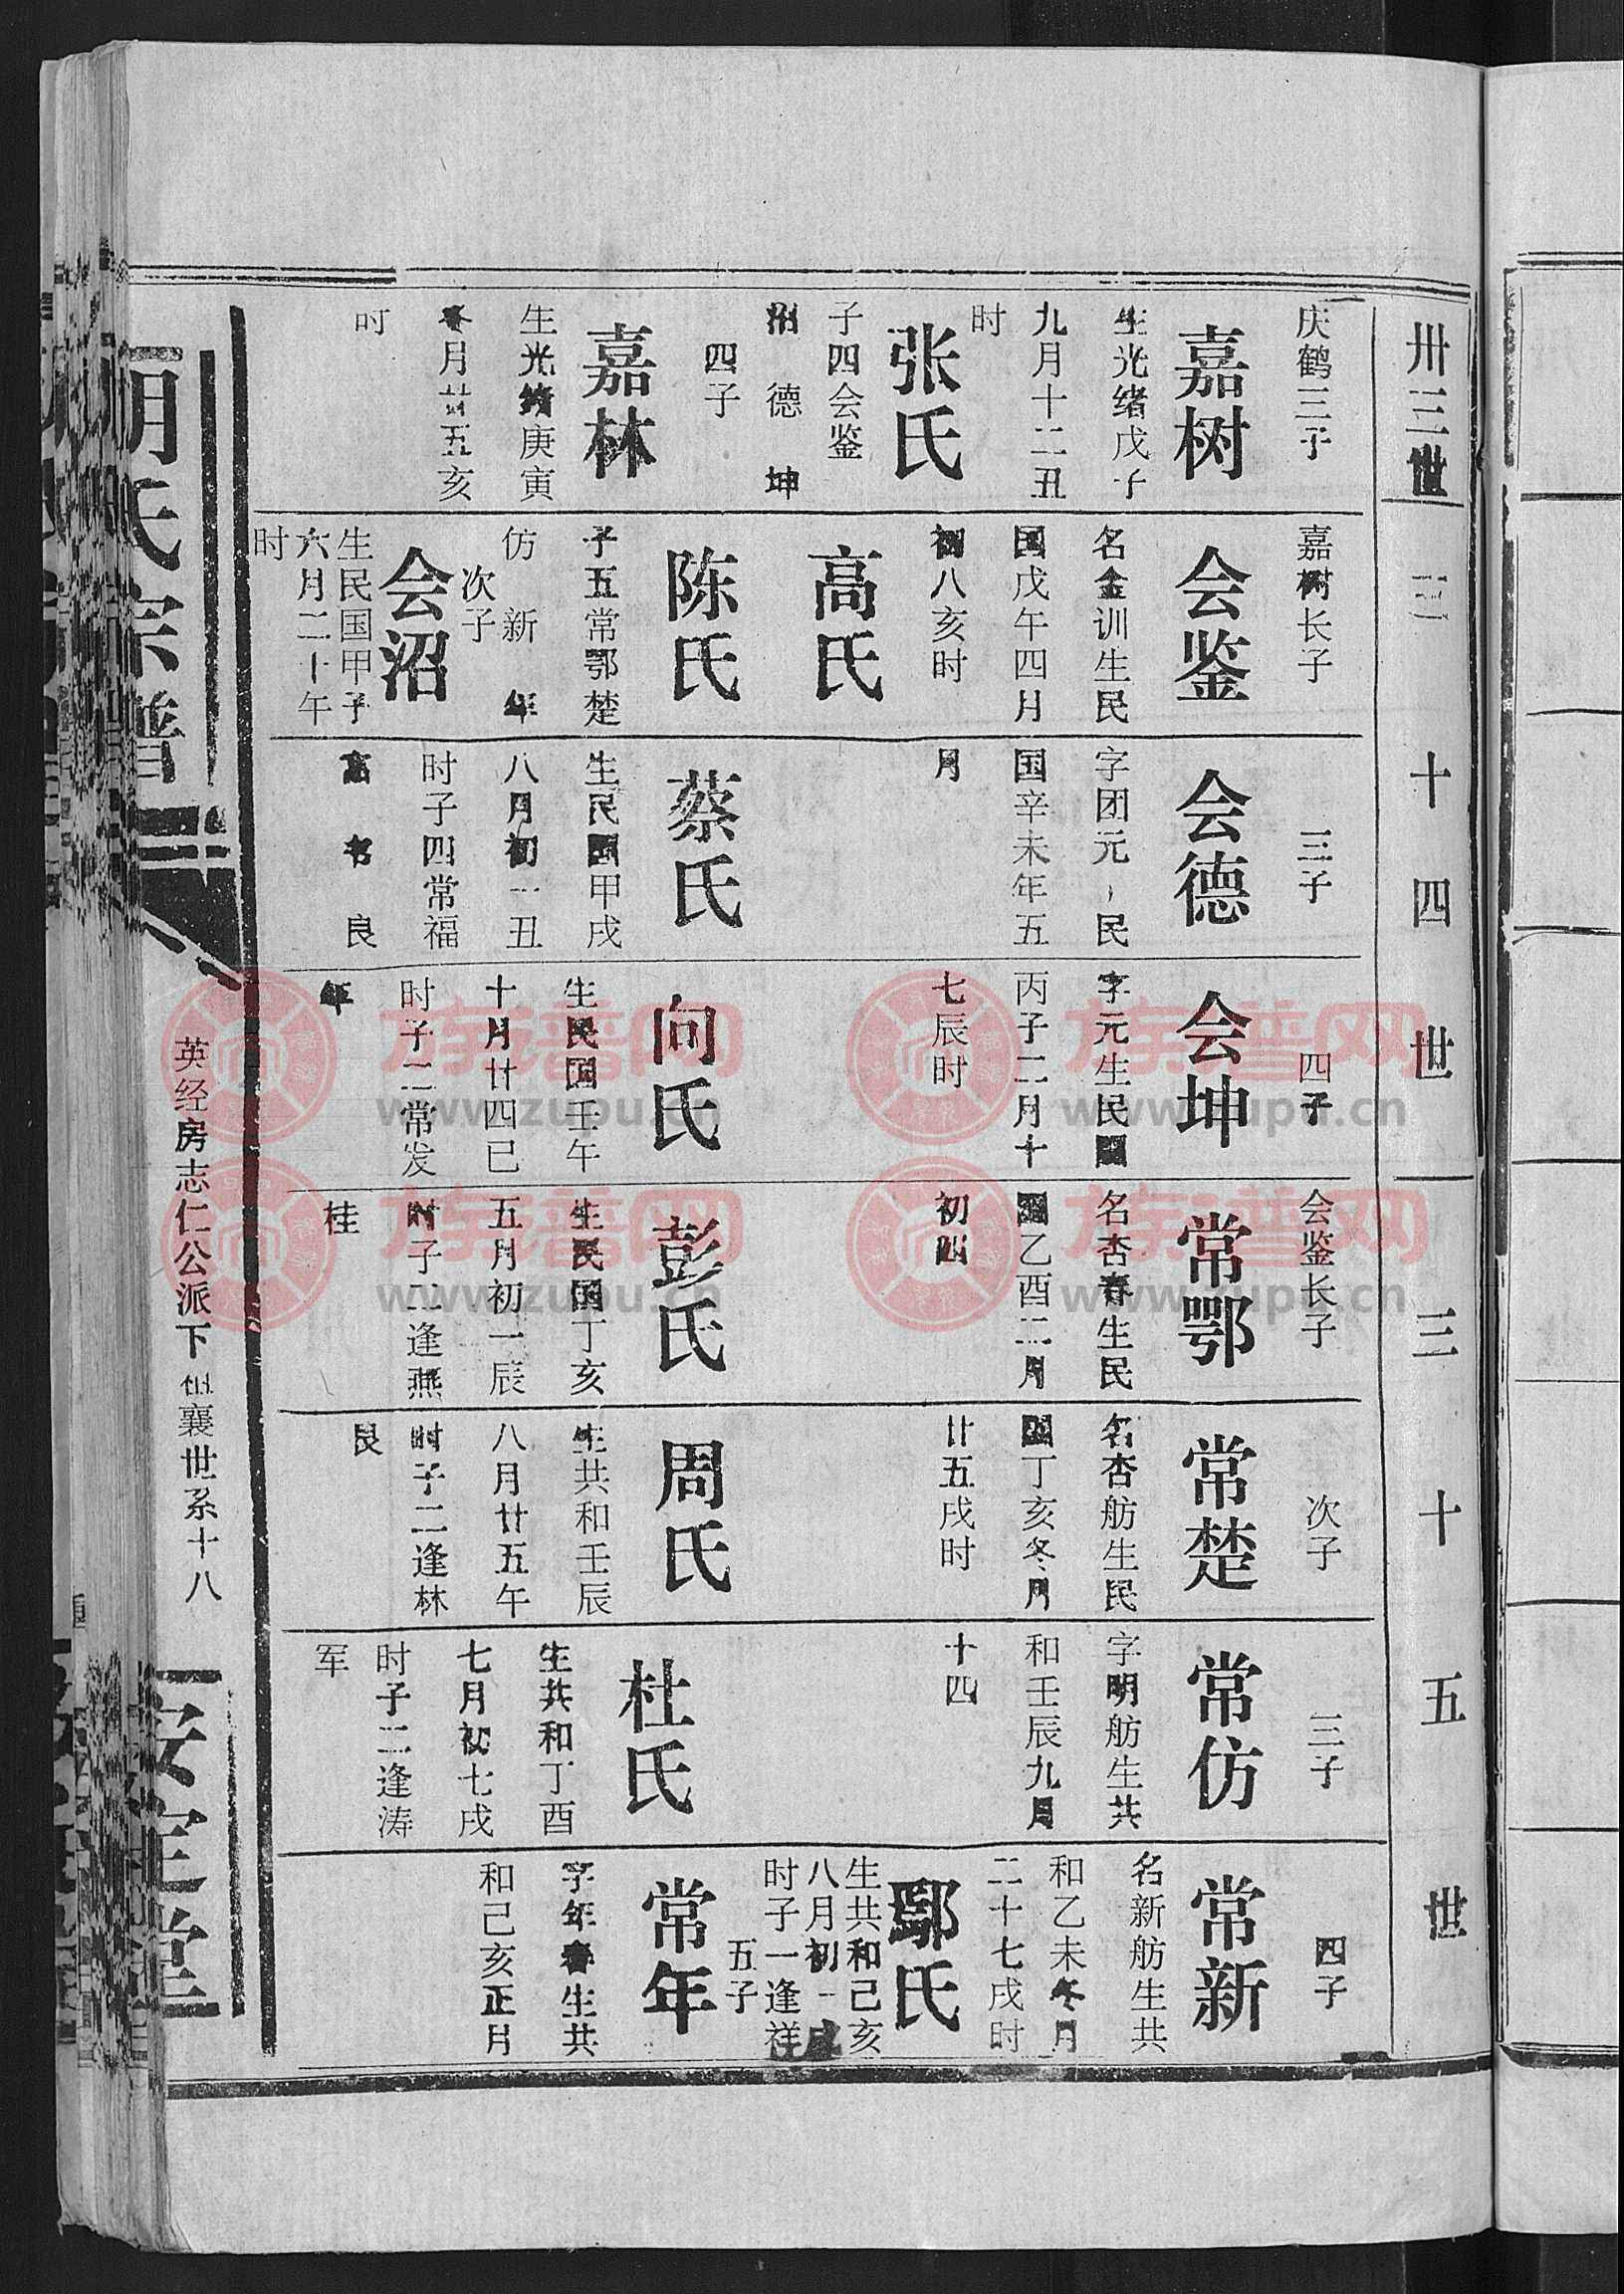 卅三世
庆鹤三子
嘉树
生光绪戊子
九月十二丑
时
张氏
子四会鉴
沼 德 坤
四子
嘉林
生光绪庚寅
冬月廿五亥
时
三十四世
嘉树长子
会鉴
名金训生民
国戊午四月
初八亥时
高氏
陈氏
子五常鄂楚
仿 新 年
次子
会沼
生民国甲子
六月二十午
时
三子
会德
字团元 民
国辛未年五
月
蔡氏
生民国甲戌
八月初一丑
时子四常福
高 书 良
四子
会坤
字元生民国
丙子二月十
七辰时
向氏
生民国壬午
十月廿四巳
时子二常发
年
三十五世
会鉴长子
常鄂
名杏春生民
国乙酉二月
初四
彭氏
生民国丁亥
五月初一辰
时子二逢燕
桂
次子
常楚
名杏舫生民
国丁亥冬月
廿五戌时
周氏
生共和壬辰
八月廿五午
时子二逢林
良
三子
常仿
字明舫生共
和壬辰九月
十四
杜氏
生共和丁酉
七月初七戌
时子二逢涛
军
四子
常新
名新舫生共
和乙未冬月
二十七戌时
鄢氏
生共和己亥
八月初一戌
时子一逢祥
五子
常年
字年春生共
和己亥正月
胡氏宗谱
英经房志仁公派下 襄世系十八
安定堂
族谱网
www.zupu.cn
族谱网
www.zupu.cn
族谱网
www.zupu.cn
族谱网
www.zupu.cn